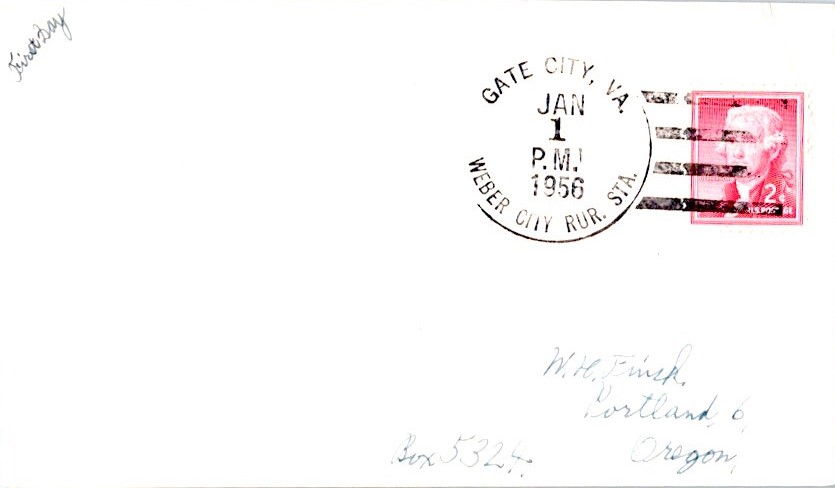 First Day
GATE CITY, VA.
JAN
1
P.M.
1956
WEBER CITY RUR. STA.
2¢
U.S. POSTAGE
W. H. Finck.
Portland, 6,
Box 5324. Oregon,